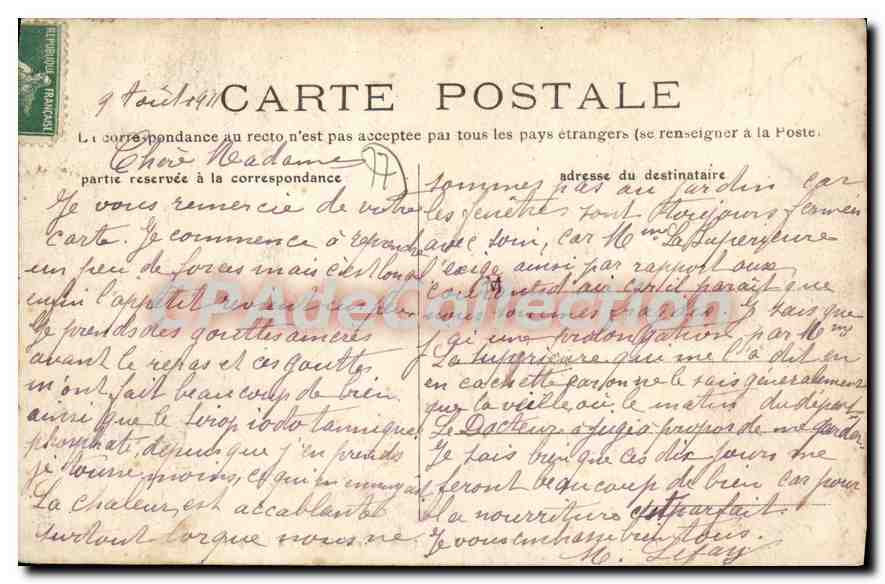 REPUBLIQUE FRANCAISE
9 Août 1911
CARTE POSTALE
La correspondance au recto n'est pas acceptée par tous les pays étrangers (se renseigner à la Poste)
Chère Madame
77
partie reservée à la correspondance
adresse du destinataire
Je vous remercie de votre
carte. Je commence à reprendre
un peu de forces mais c'est long
enfin l'appétit revient un peu
Je prends des gouttes amères
avant le repas et ces gouttes
m'ont fait beaucoup de bien
ainsi que le sirop iodo tannique
phosphaté, depuis que j'en prends
je tousse moins, ce qui
La chaleur est accablante
surtout lorque nous ne
sommes pas au jardin car
les fenêtres sont toujours fermées
avec soin, car Mme La Supérieure
l'exige ainsi par rapport aux
courants d'air car il paraît que
nous sommes fragiles. Je sais que
j'ai une prolongation par Mme
La Supérieure qui me l'a dit en
en cachette car on ne le sais généralement
que la veille où le matin du départ
Le Docteur a jugé à propos de me garder
Je sais bien que ces dix jours me
feront beaucoup de bien car pour
la nourriture c'est parfait
Je vous embrasse bien tous.
M. Lefay
CPADeCollection